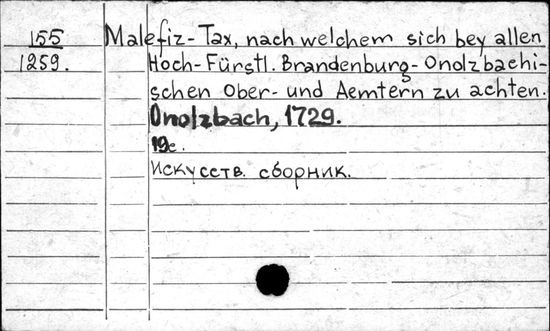 155 Malefiz-Tax, nach welchem sich bey allen
1259. Hoch-Fürstl. Brandenburg-Onolzbachi-
schen Ober- und Aemtern zu achten.
Onolzbach, 1729.
19c.
Искусств. сборник.